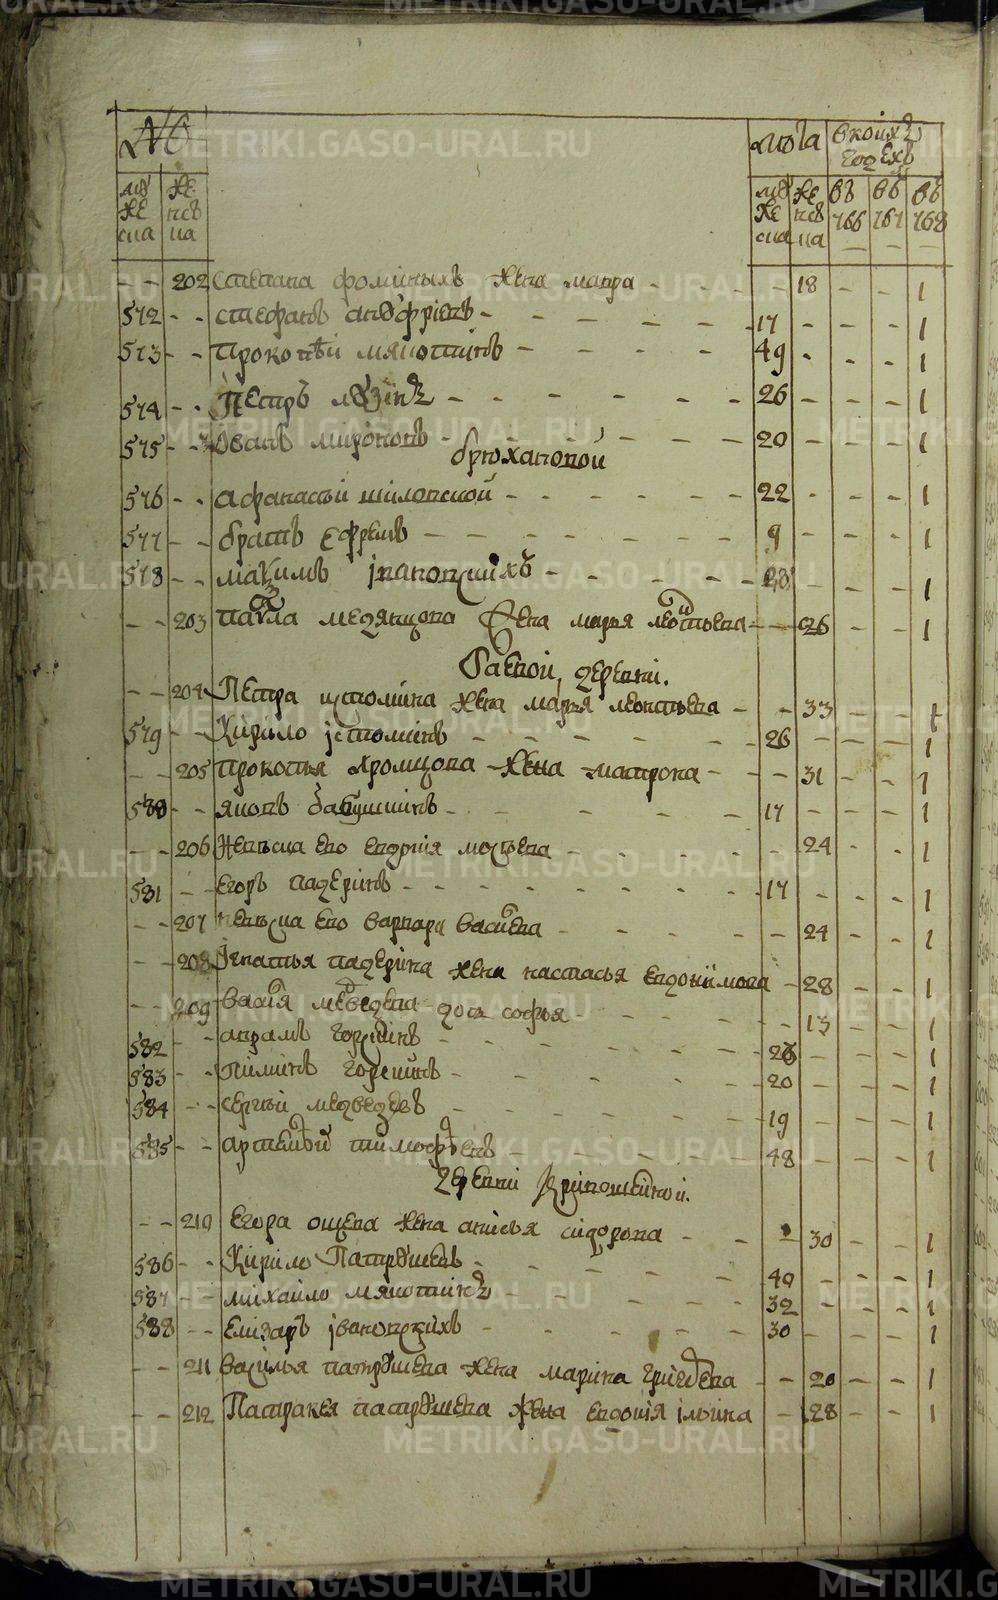 № лѣта в коихъ годѣхъ
муже женс муже женс въ въ въ
ска ка ска ка 766 767 768
202 Степана фоминыхъ жена мавра 18 1
572 стефанъ 17 1
573 прокопѣй мякотинъ 49 1
574 Петръ мѣзинъ 26 1
575 Иванъ миронов 20 1
брюхановой
576 афанасѣй шиловской 22 1
577 братъ ефремъ 9 1
578 маѯимъ івановскихъ 28 1
203 павла медянцова жена марья леонтьева 26 1
Баевой деревни.
204 Петра истомина жена марья леонтьева 33 1
579 Кирило істоминъ 26 1
205 прокопья хромцова жена матрона 31 1
580 яковъ бабушкинъ 17 1
206 Невѣска ево евдокия 24 1
581 Егоръ падеринъ 17 1
207 невѣска ево варвара васильева 24 1
208 Игнатья падерина жена настасья евдокимова 28 1
209 василья медведева дочь софья 13 1
582 аврамъ 26 1
583 пиминъ 20 1
584 сергѣй медведевъ 19 1
585 артемей тимофѣевъ 48 1
деревни кривошеиной.
210 Егора ощева жена анисья сидорова 30 1
586 Кирило Патрушевъ 40 1
587 михайло мякотинъ 32 1
588 Елизаръ івановскихъ 30 1
211 василья патрушева жена марина григорьева 20 1
212 Патракея патрушева жена евдокия ильина 28 1
METRIKI.GASO-URAL.RU